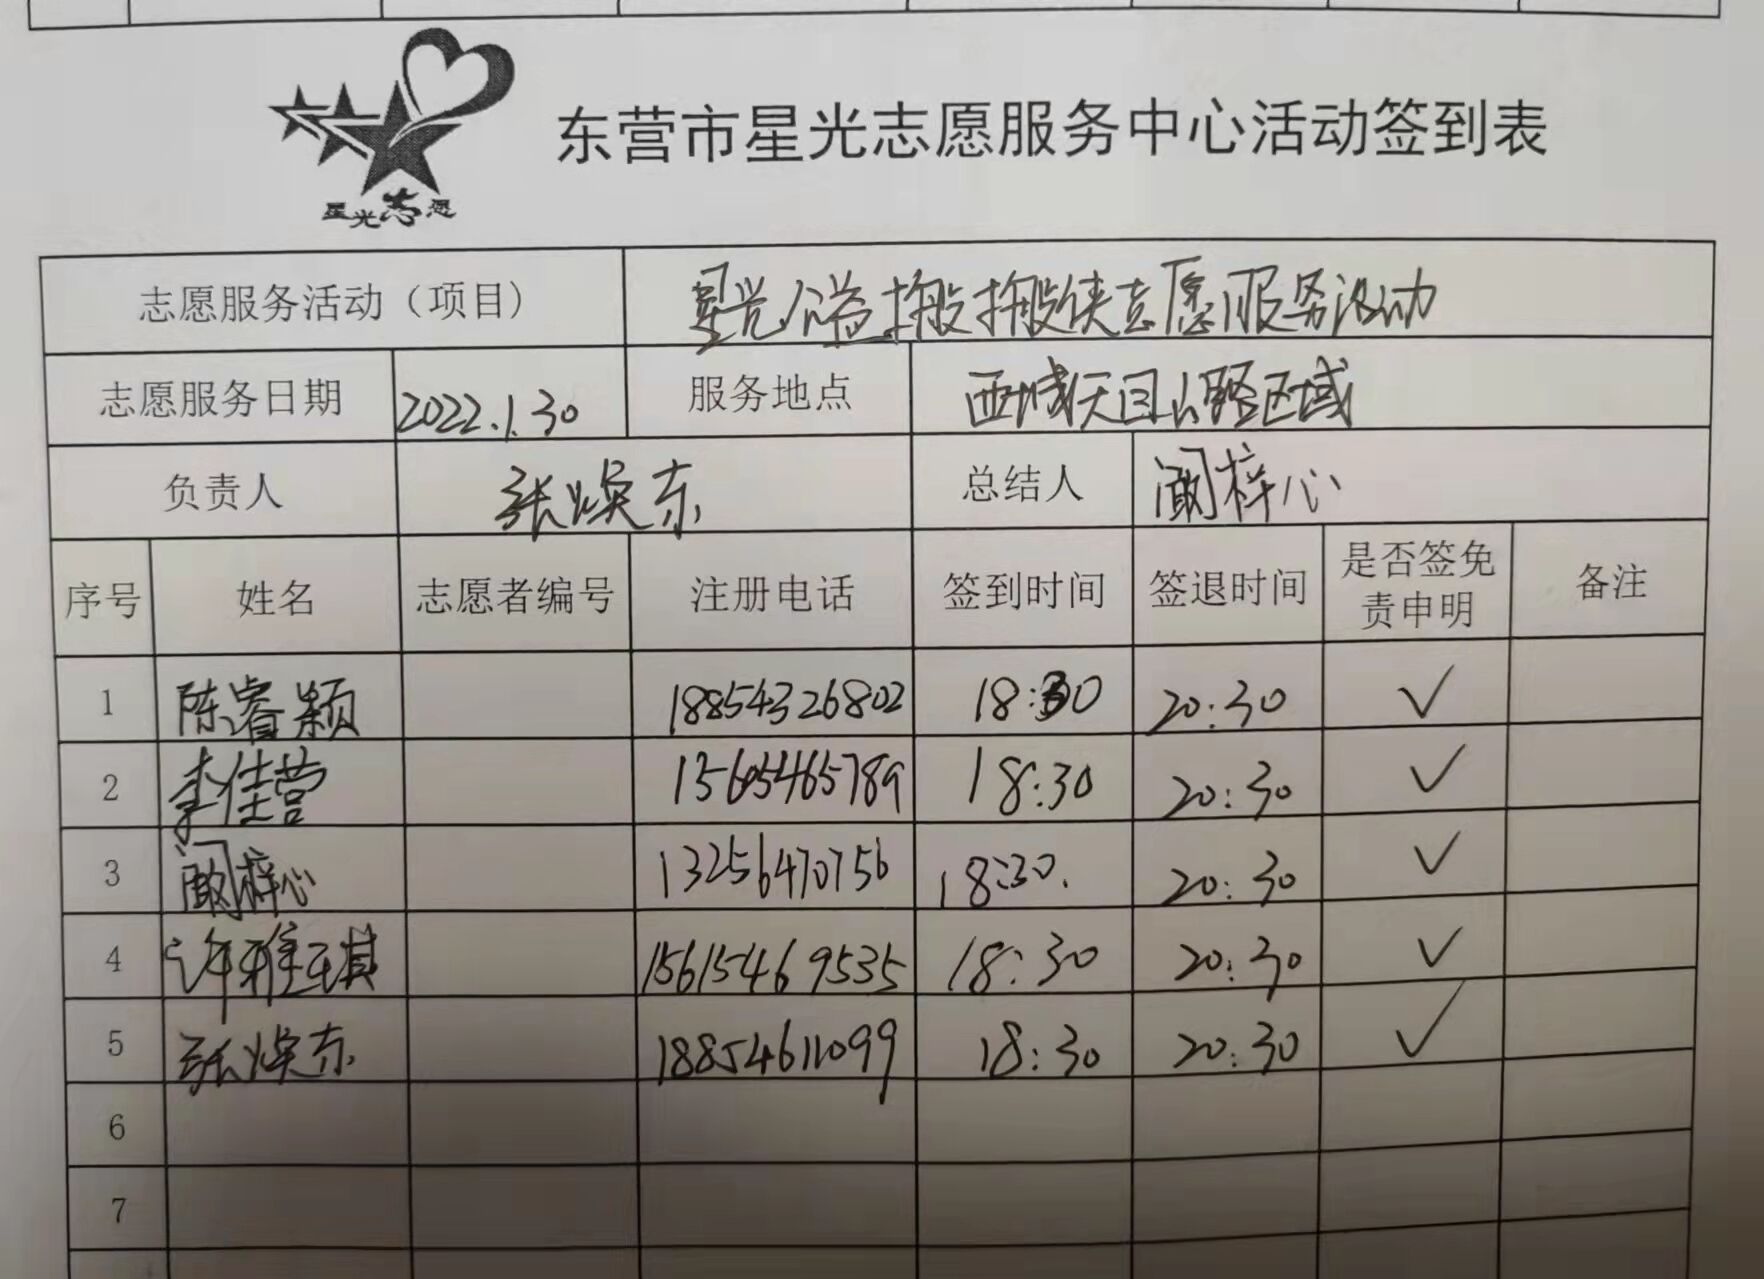 星光志愿
东营市星光志愿服务中心活动签到表
志愿服务活动（项目） 星光公益搬搬侠志愿服务活动
志愿服务日期 2022.1.30 服务地点 西城天目山路区域
负责人 张焕东 总结人 阚梓心
序号 姓名 志愿者编号 注册电话 签到时间 签退时间 是否签免责申明 备注
1 陈睿颖 18854326802 18:30 20:30 ✓
2 李佳营 13605465789 18:30 20:30 ✓
3 阚梓心 13256470756 18:30. 20:30 ✓
4 许雅琪 15615469535 18:30 20:30 ✓
5 张焕东 18854611099 18:30 20:30 ✓
6
7